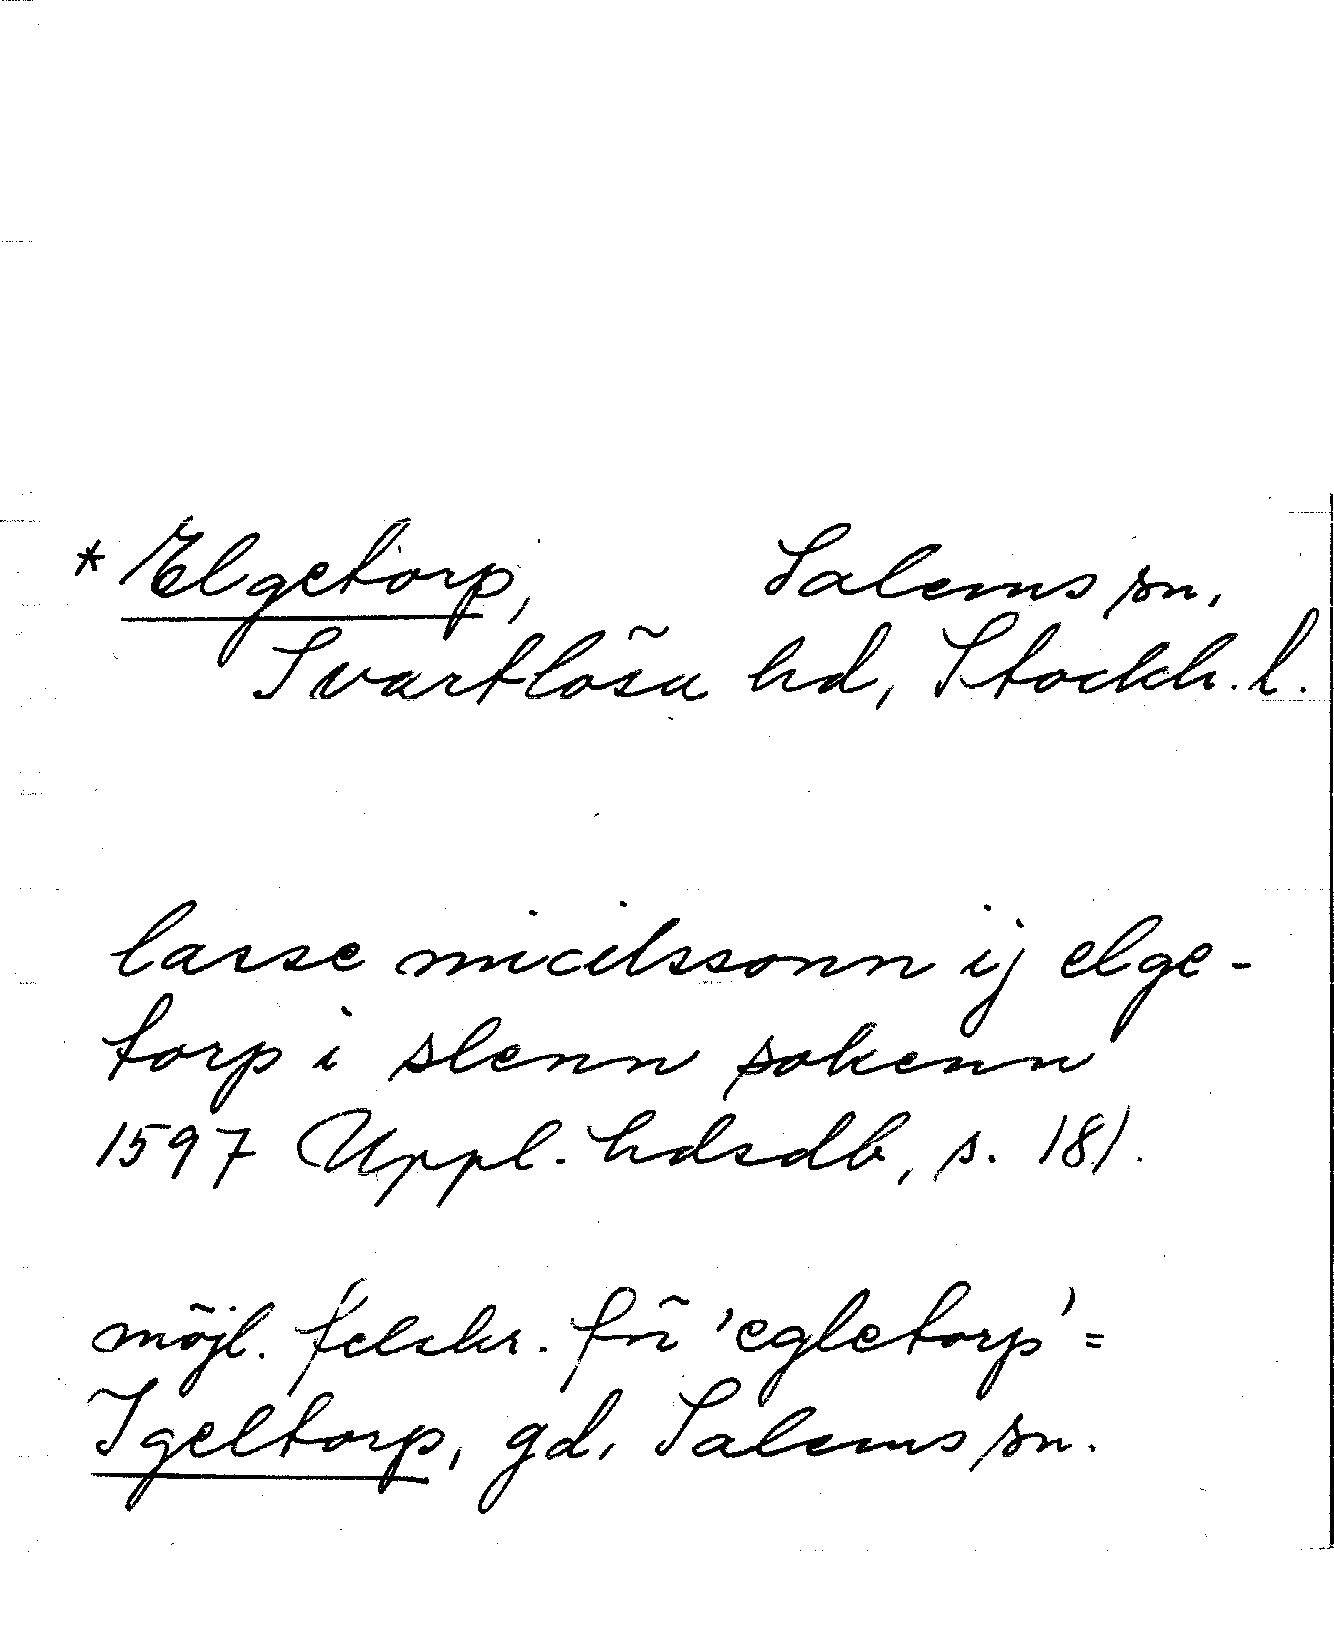 * Elgetorp, Salems sn,
Svartlösa hd, Stockh. l.
lasse micilssonn ij elge-
torp i slenn sokenn
1597 Uppl. hdsdb, s. 181.
möjl. felskr. för 'egletorp' =
Igeltorp, gd, Salems sn.